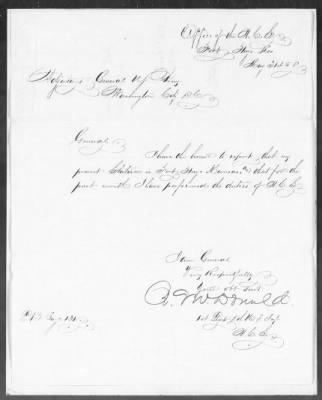 Office of the A. C. S.
Fort Hays Kas
May 31st
Adjutant General U.S. Army
Washington City D.C.
General
I have the honor to report that my
present Station is Fort Hays Kansas that for the
past month I have performed the duties of A. C. S.
I am General
Very Respectfully
Your Obt Servt
McDonald
1st Lieut
A. C. S.